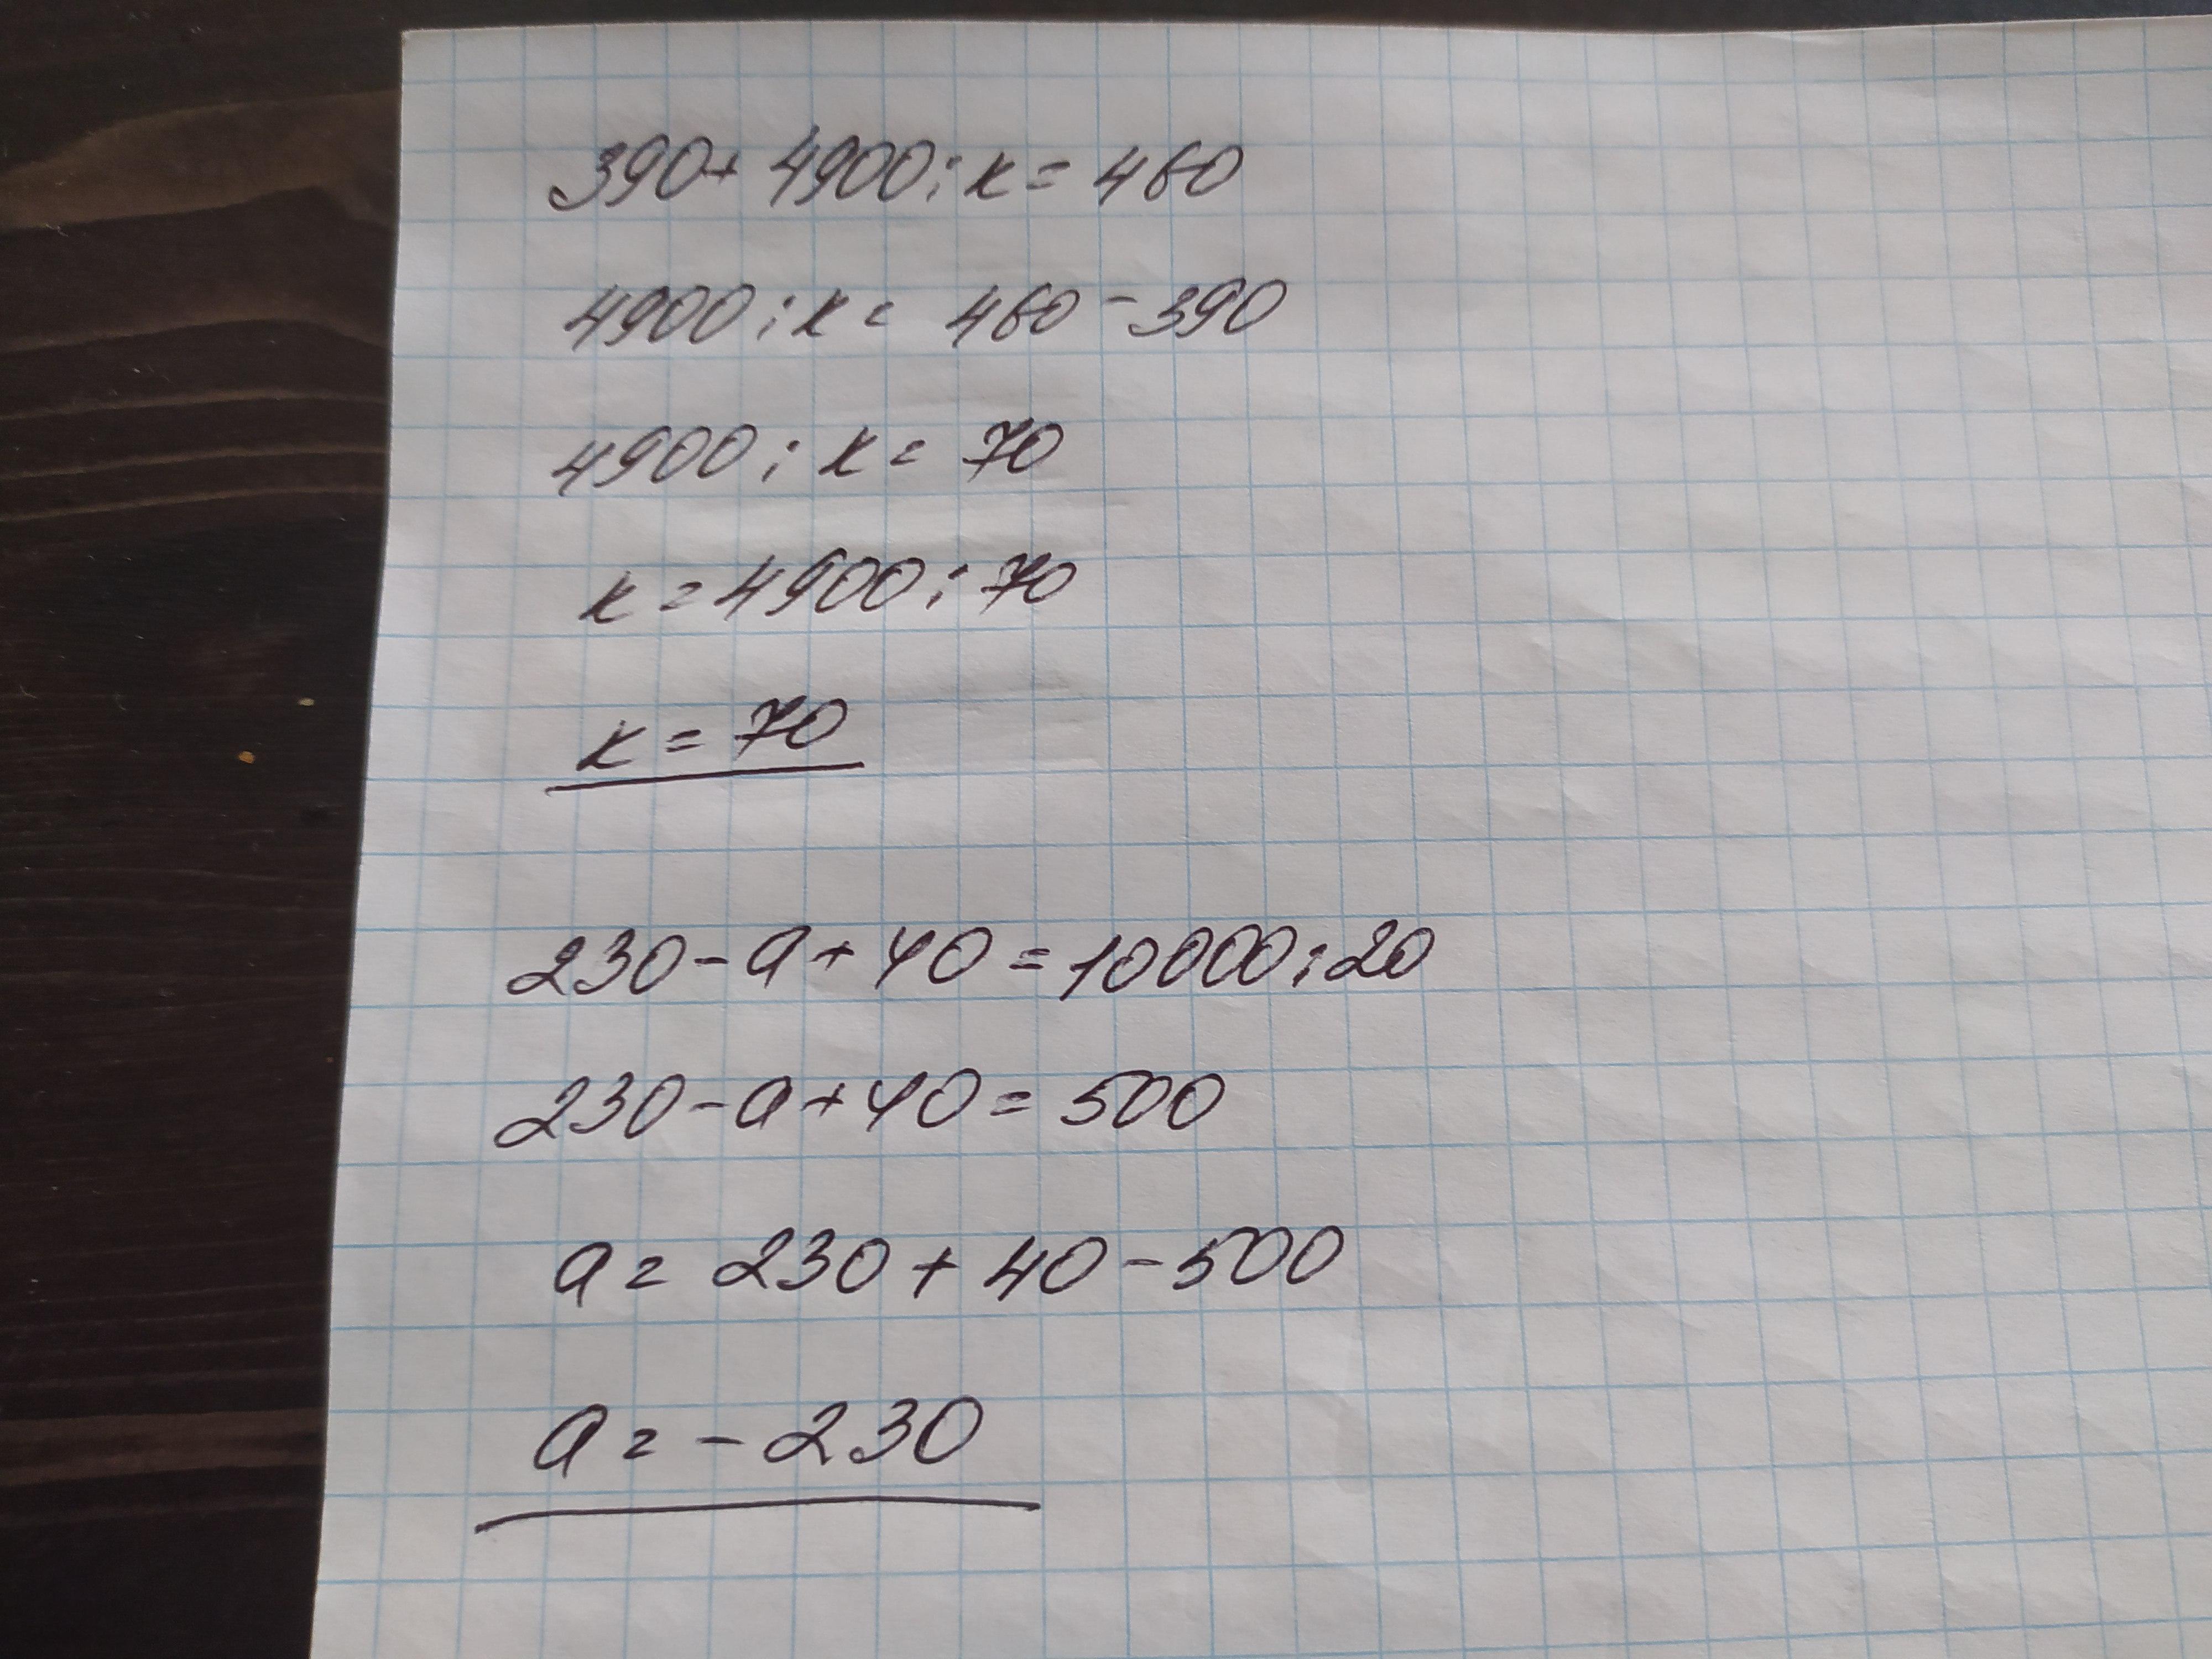 390+ 4900:к= 460
4900:к= 460-390
4900:к= 70
к=4900:70
к=70
230-а+40=10000:20
230-а+40=500
а= 230+40-500
а=-230